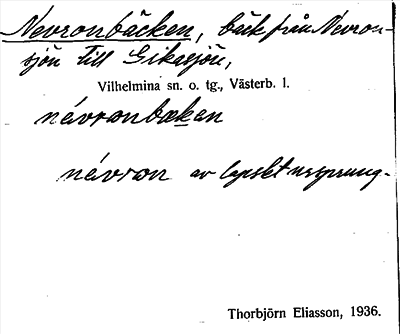 Nevronbäcken, bäck från Nevron-
sjön till Gikasjön,
Vilhelmina sn. o. tg., Västerb. l.
névronbækan
névron av lapskt ursprung.
Thorbjörn Eliasson, 1936.